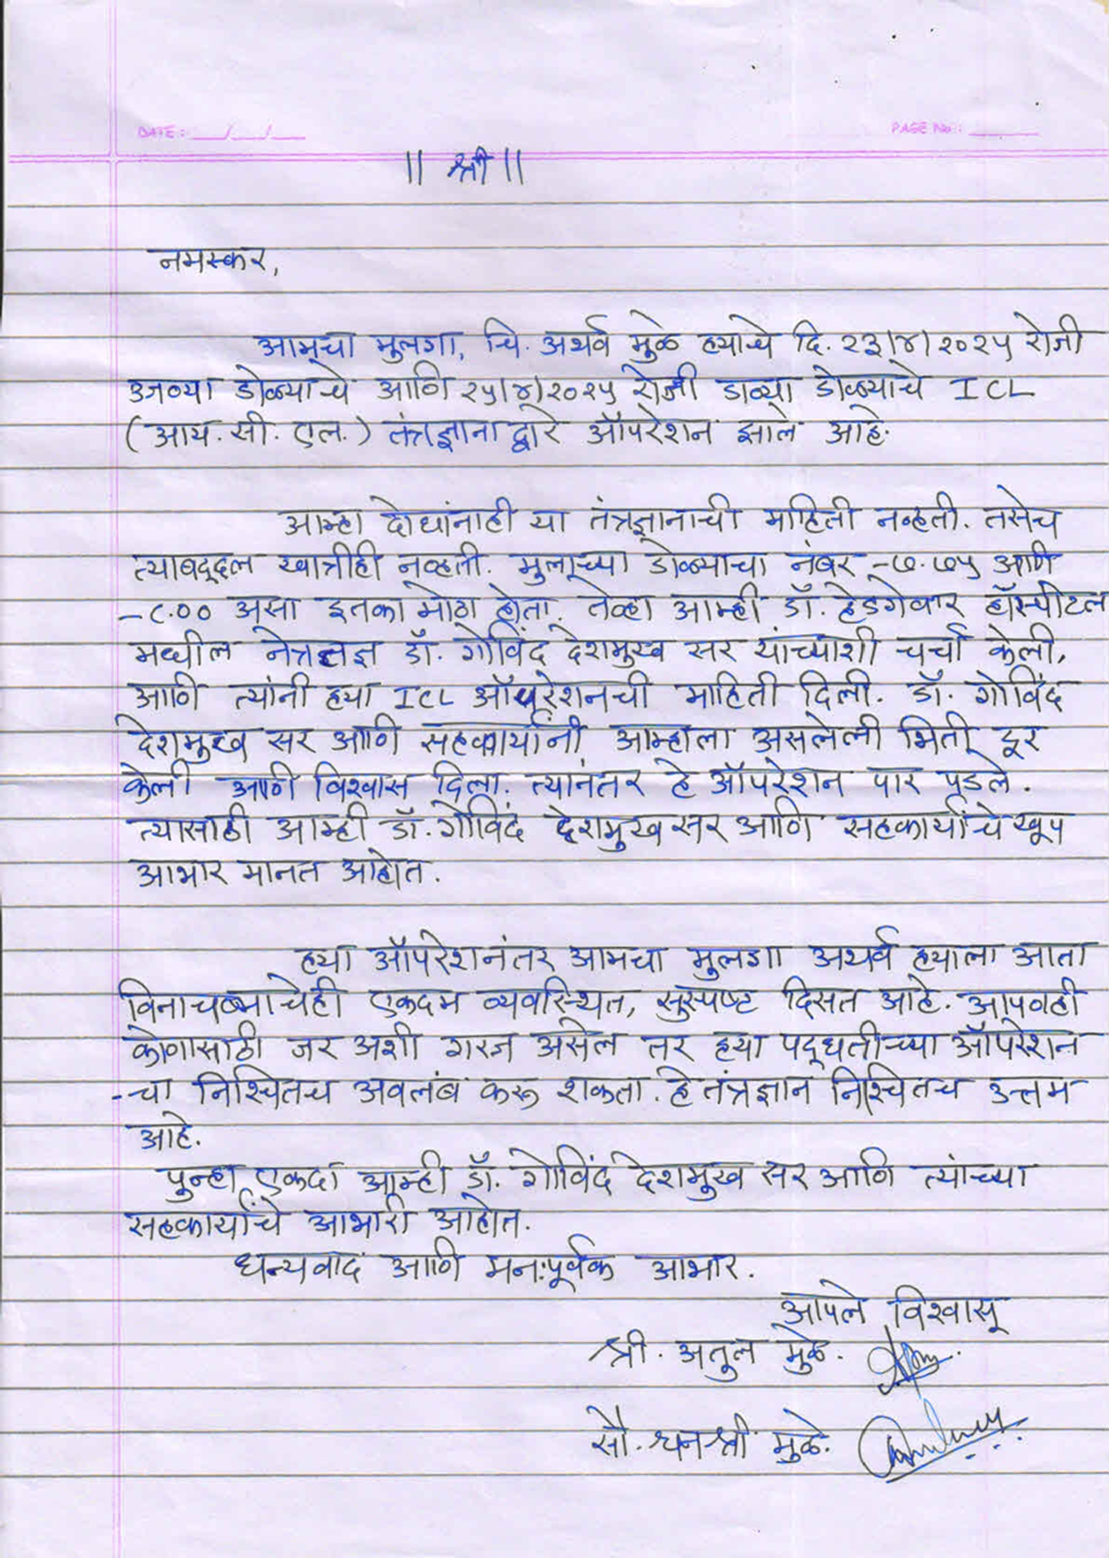 DATE: __/__/__
PAGE No.: ____
|| श्री ||
नमस्कर,
आमचा मुलगा, चि. अथर्व मुळे ह्याचे दि. २३/४/२०२५ रोजी
उजव्या डोळ्याचे आणि २५/४/२०२५ रोजी डाव्या डोळ्याचे ICL
(आय. सी. एल.) तंत्रज्ञानाद्वारे ऑपरेशन झाले आहे.
आम्हा दोघांनाही या तंत्रज्ञानाची माहिती नव्हती. तसेच
त्याबद्दल खात्रीही नव्हती. मुलाच्या डोळ्याचा नंबर -७.७५ आणि
-८.०० असा इतका मोठा होता. तेव्हा आम्ही डॉ. हेडगेवार हॉस्पीटल
मधील नेत्रतज्ञ डॉ. गोविंद देशमुख सर यांच्याशी चर्चा केली,
आणि त्यांनी ह्या ICL ऑपरेशनची माहिती दिली. डॉ. गोविंद
देशमुख सर आणि सहकार्यांनी आम्हाला असलेली भिती दूर
केली आणि विश्वास दिला. त्यानंतर हे ऑपरेशन पार पडले.
त्यासाठी आम्ही डॉ. गोविंद देशमुख सर आणि सहकार्यांचे खूप
आभार मानत आहोत.
ह्या ऑपरेशनंतर आमचा मुलगा अथर्व ह्याला आता
विनाचष्माचेही एकदम व्यवस्थित, सुस्पष्ट दिसत आहे. आपणही
कोणासाठी जर अशी गरज असेल तर ह्या पद्धतीच्या ऑपरेशन
-चा निश्चितच अवलंब करू शकता. हे तंत्रज्ञान निश्चितच उत्तम
आहे.
पुन्हा एकदा आम्ही डॉ. गोविंद देशमुख सर आणि त्यांच्या
सहकार्यांचे आभारी आहोत.
धन्यवाद आणि मनःपूर्वक आभार.
आपले विश्वासू
श्री. अतुल मुळे.
सौ. धनश्री मुळे.